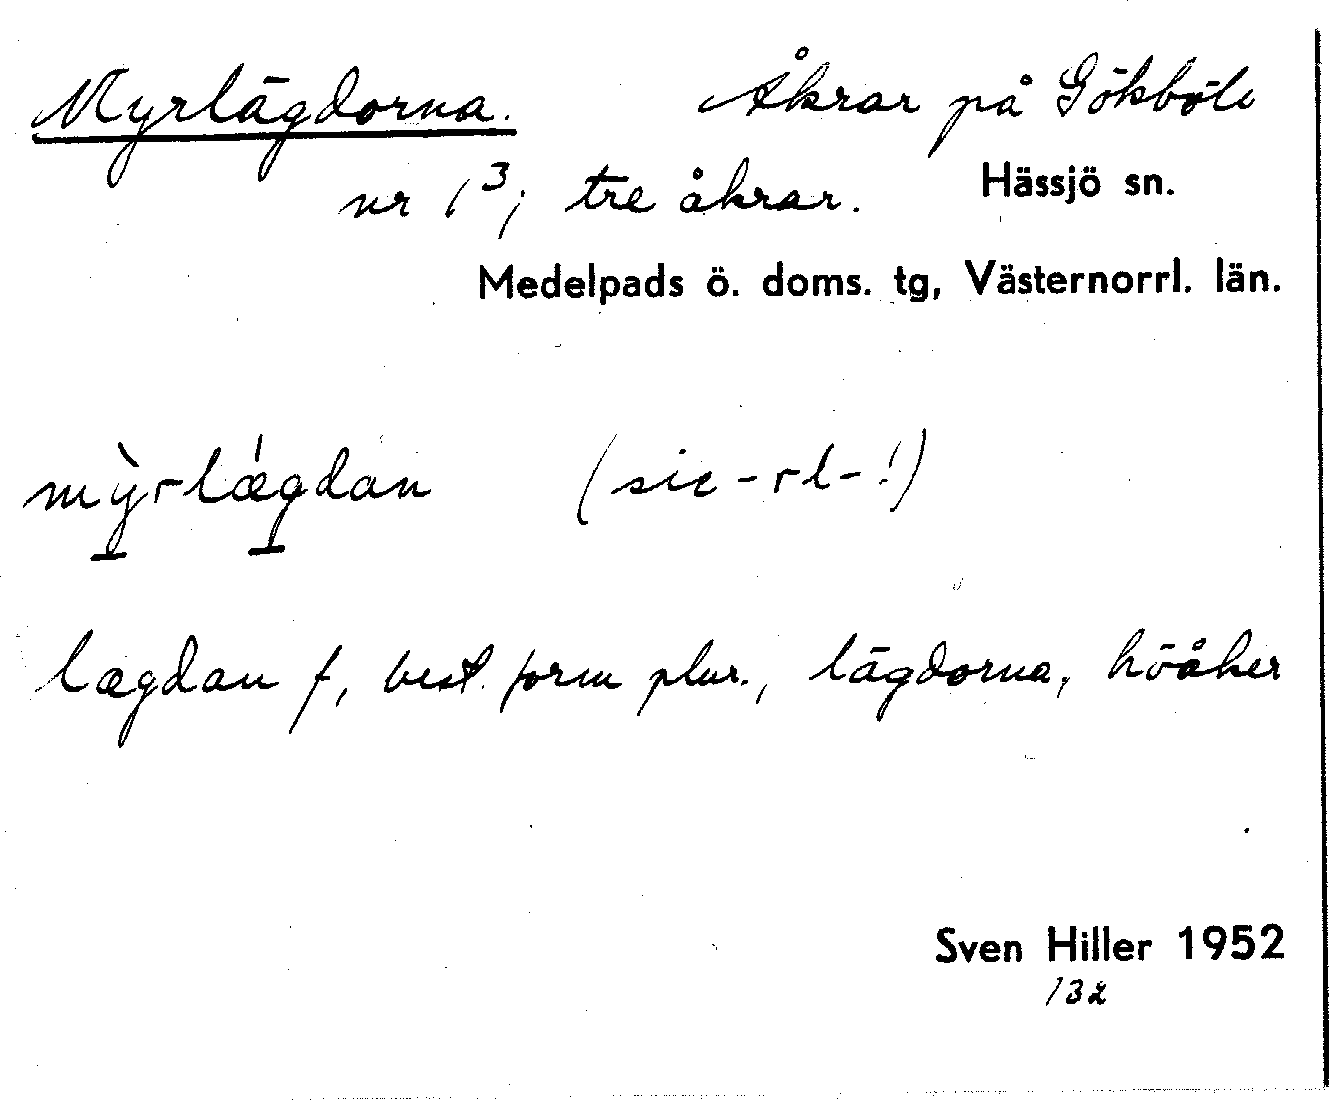 Myrlägdorna. Åkrar på Gökböle
nr 1³; tre åkrar. Hässjö sn.
Medelpads ö. doms. tg, Västernorrl. län.
mỳ̱rlǽg̱dan (sic -rl-!)
lægdan f, best. form plur., lägdorna, höåker
Sven Hiller 1952
132